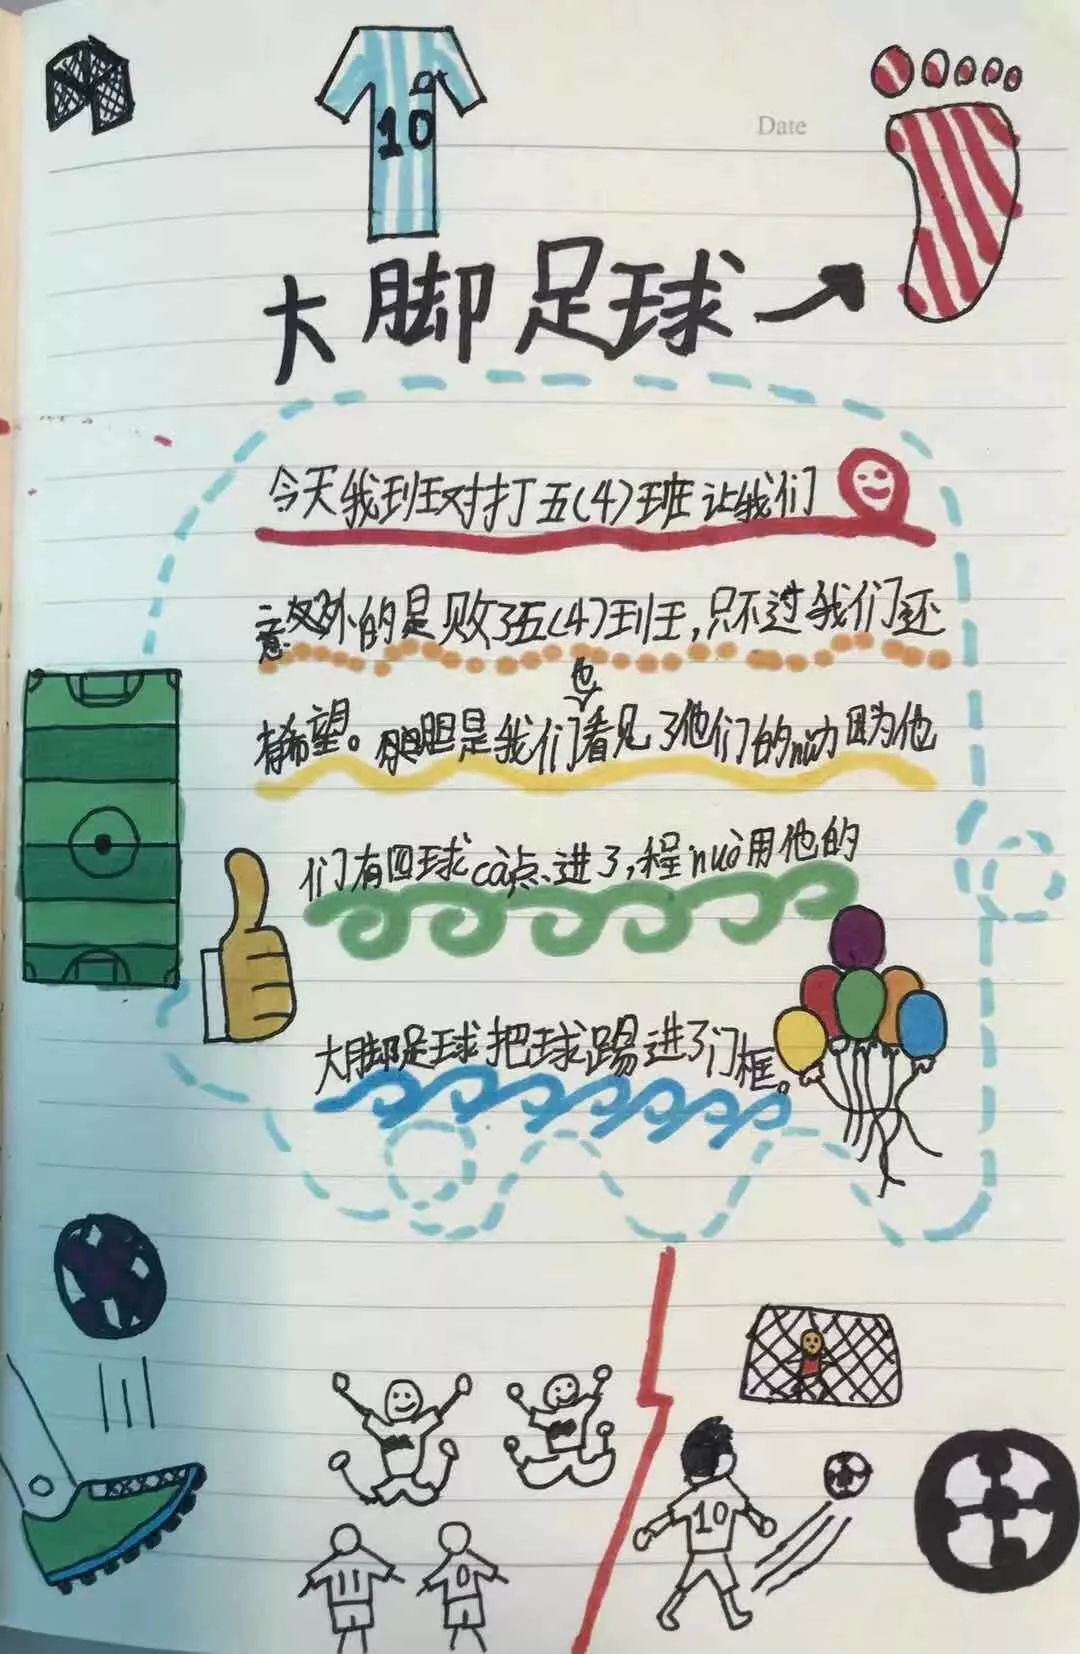 10
Date
大脚足球
今天我班对打五(4)班让我们
意外的是败了五(4)班,只不过我们还
有希望。但是我们也看见了他们的nu力因为他
们有四球cà点进了,程nuò用他的
大脚足球把球踢进了门框。
10
11
0